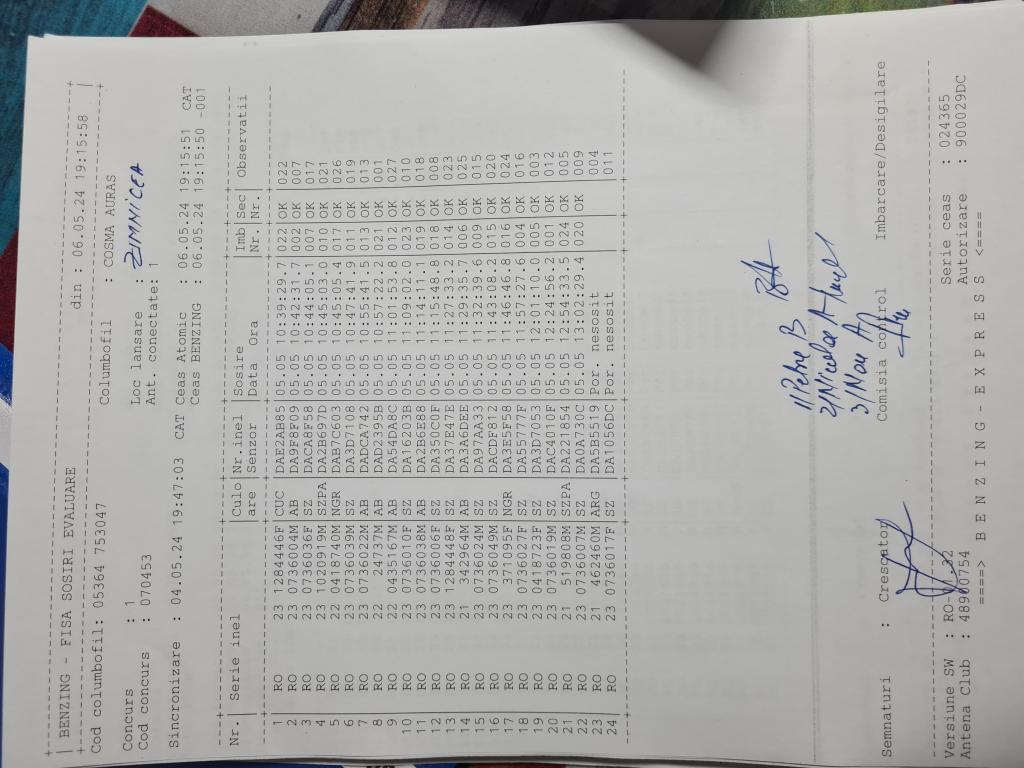 BENZING - FISA SOSIRI EVALUARE din : 06.05.24 19:15:58
Cod columbofil: 05364 753047 Columbofil : COSMA AURAS
Concurs : 1 Loc lansare : ZIMNICEA
Cod concurs : 070453 Ant. conectate: 1
Sincronizare : 04.05.24 19:47:03 CAT Ceas Atomic : 06.05.24 19:15:51 CAT
Ceas BENZING : 06.05.24 19:15:50 -001
Nr.| Serie inel |Culo|Nr.inel |Sosire |Imb|Sec| Observatii
|are |Senzor |Data Ora |Nr.|Nr.|
1 RO 23 1284446F CUC DAE2AB85 05.05 10:39:29.7 022 OK 022
2 RO 23 0736004M AB DA9F8F09 05.05 10:42:31.7 002 OK 007
3 RO 23 0736036F SZ DACA8F58 05.05 10:44:05.1 007 OK 017
4 RO 23 1020919M SZPA DA2B697D 05.05 10:45:03.0 010 OK 021
5 RO 22 0418740M NGR DAB7C603 05.05 10:45:05.4 017 OK 026
6 RO 23 0736039M SZ DA3D7108 05.05 10:47:41.9 008 OK 019
7 RO 23 0736022M AB DADCA742 05.05 10:55:41.5 013 OK 013
8 RO 22 24737M AB DAD2395B 05.05 10:57:22.2 021 OK 001
9 RO 22 0435167M AB DA54DA8C 05.05 10:57:53.8 012 OK 027
10 RO 23 0736010F SZ DA16203B 05.05 11:09:02.0 023 OK 010
11 RO 23 0736038M AB DA2B6E88 05.05 11:14:11.1 019 OK 018
12 RO 23 0736006F SZ DA350C0F 05.05 11:15:48.8 018 OK 008
13 RO 23 1284448F SZ DA37E47E 05.05 11:27:33.2 014 OK 023
14 RO 21 342964M AB DA3A6DEE 05.05 11:29:35.7 006 OK 025
15 RO 23 0736024M SZ DA97AA33 05.05 11:32:39.6 009 OK 015
16 RO 23 0736049M SZ DACDF812 05.05 11:43:08.2 015 OK 020
17 RO 22 371095F NGR DA3E5F58 05.05 11:46:46.8 016 OK 024
18 RO 23 0736027F SZ DA55777F 05.05 11:57:27.6 004 OK 016
19 RO 23 0418723F SZ DA3D7053 05.05 12:01:10.0 005 OK 003
20 RO 23 0736019M SZ DAC4010F 05.05 12:24:56.2 001 OK 012
21 RO 21 519808M SZPA DA221854 05.05 12:54:33.5 024 OK 005
22 RO 23 0736007M SZ DA0A730C 05.05 13:02:29.4 020 OK 009
23 RO 21 462460M ARG DA5B5519 Por. nesosit 004
24 RO 23 0736017F SZ DA1056DC Por. nesosit 011
1/Petre B
2/Nicolae A
3/Nan A
Semnaturi : Crescator Comisia control Imbarcare/Desigilare
Versiune SW : RO 01.32 Serie ceas : 024365
Antena Club : 48900754 Autorizare : 900029DC
====> B E N Z I N G - E X P R E S S <====